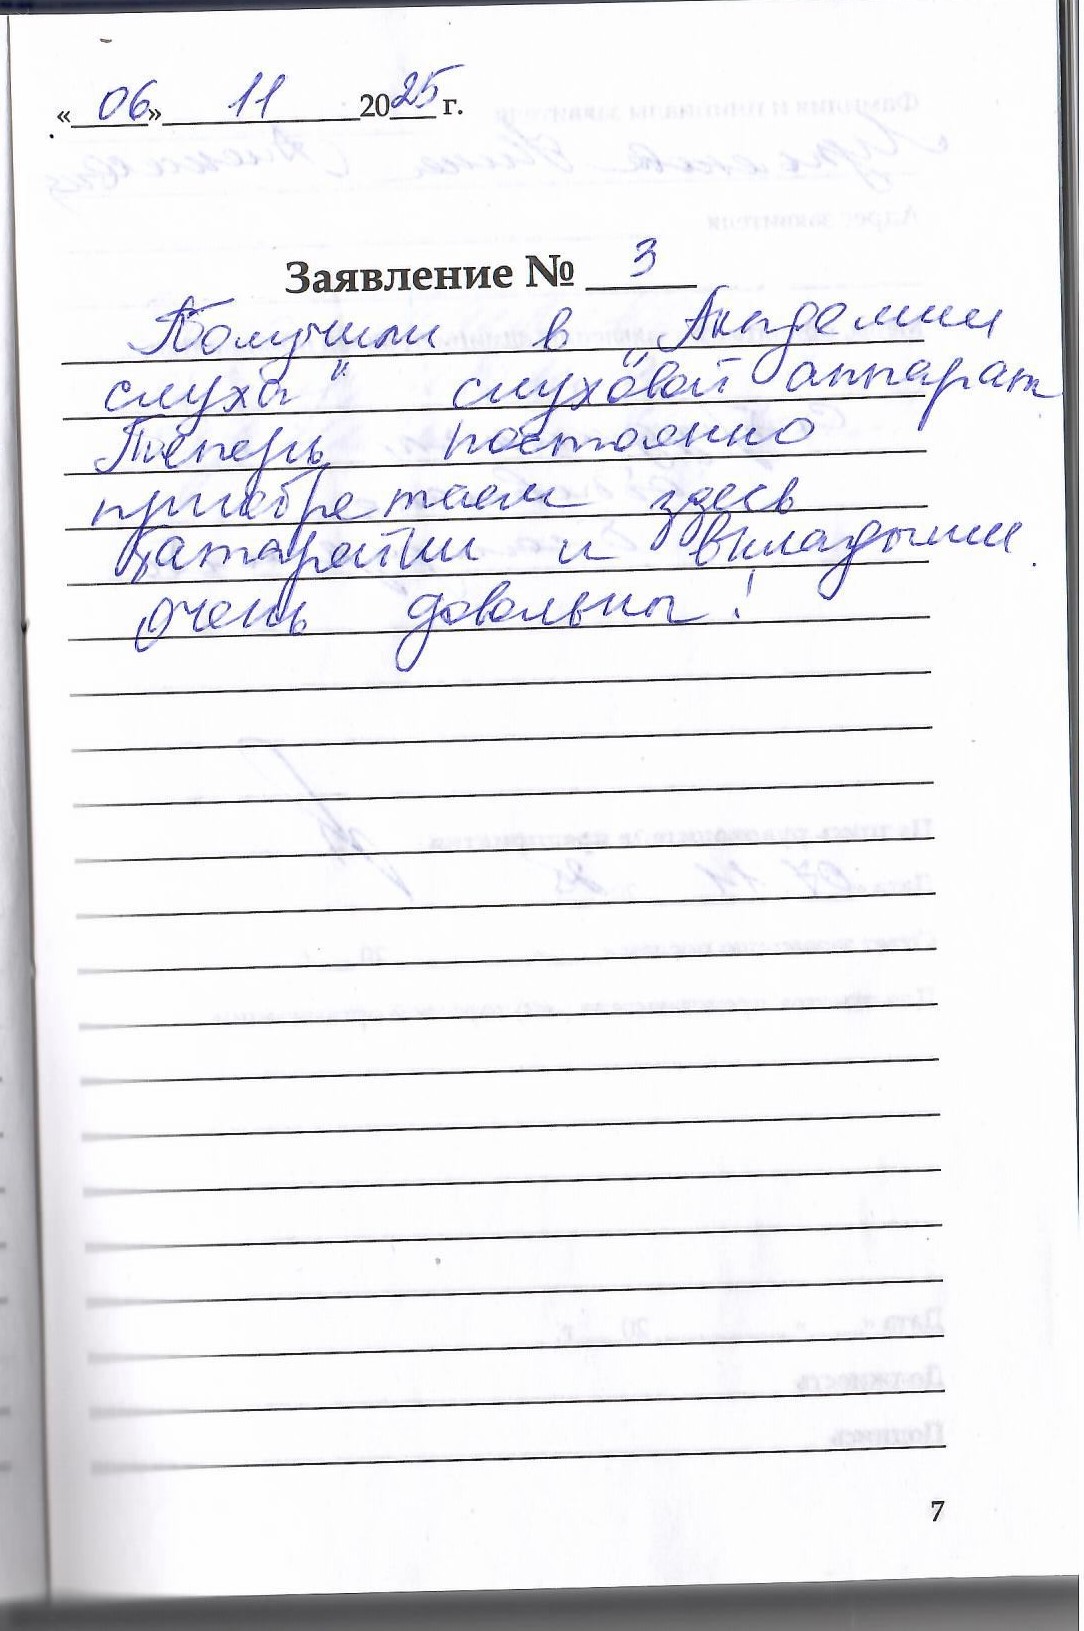 «06» 11 2025 г.
Заявление № 3
Получили в "Академии
слуха" слуховой аппарат
Теперь постоянно
приобретаем здесь
батарейки и вкладыши
очень довольны!
7